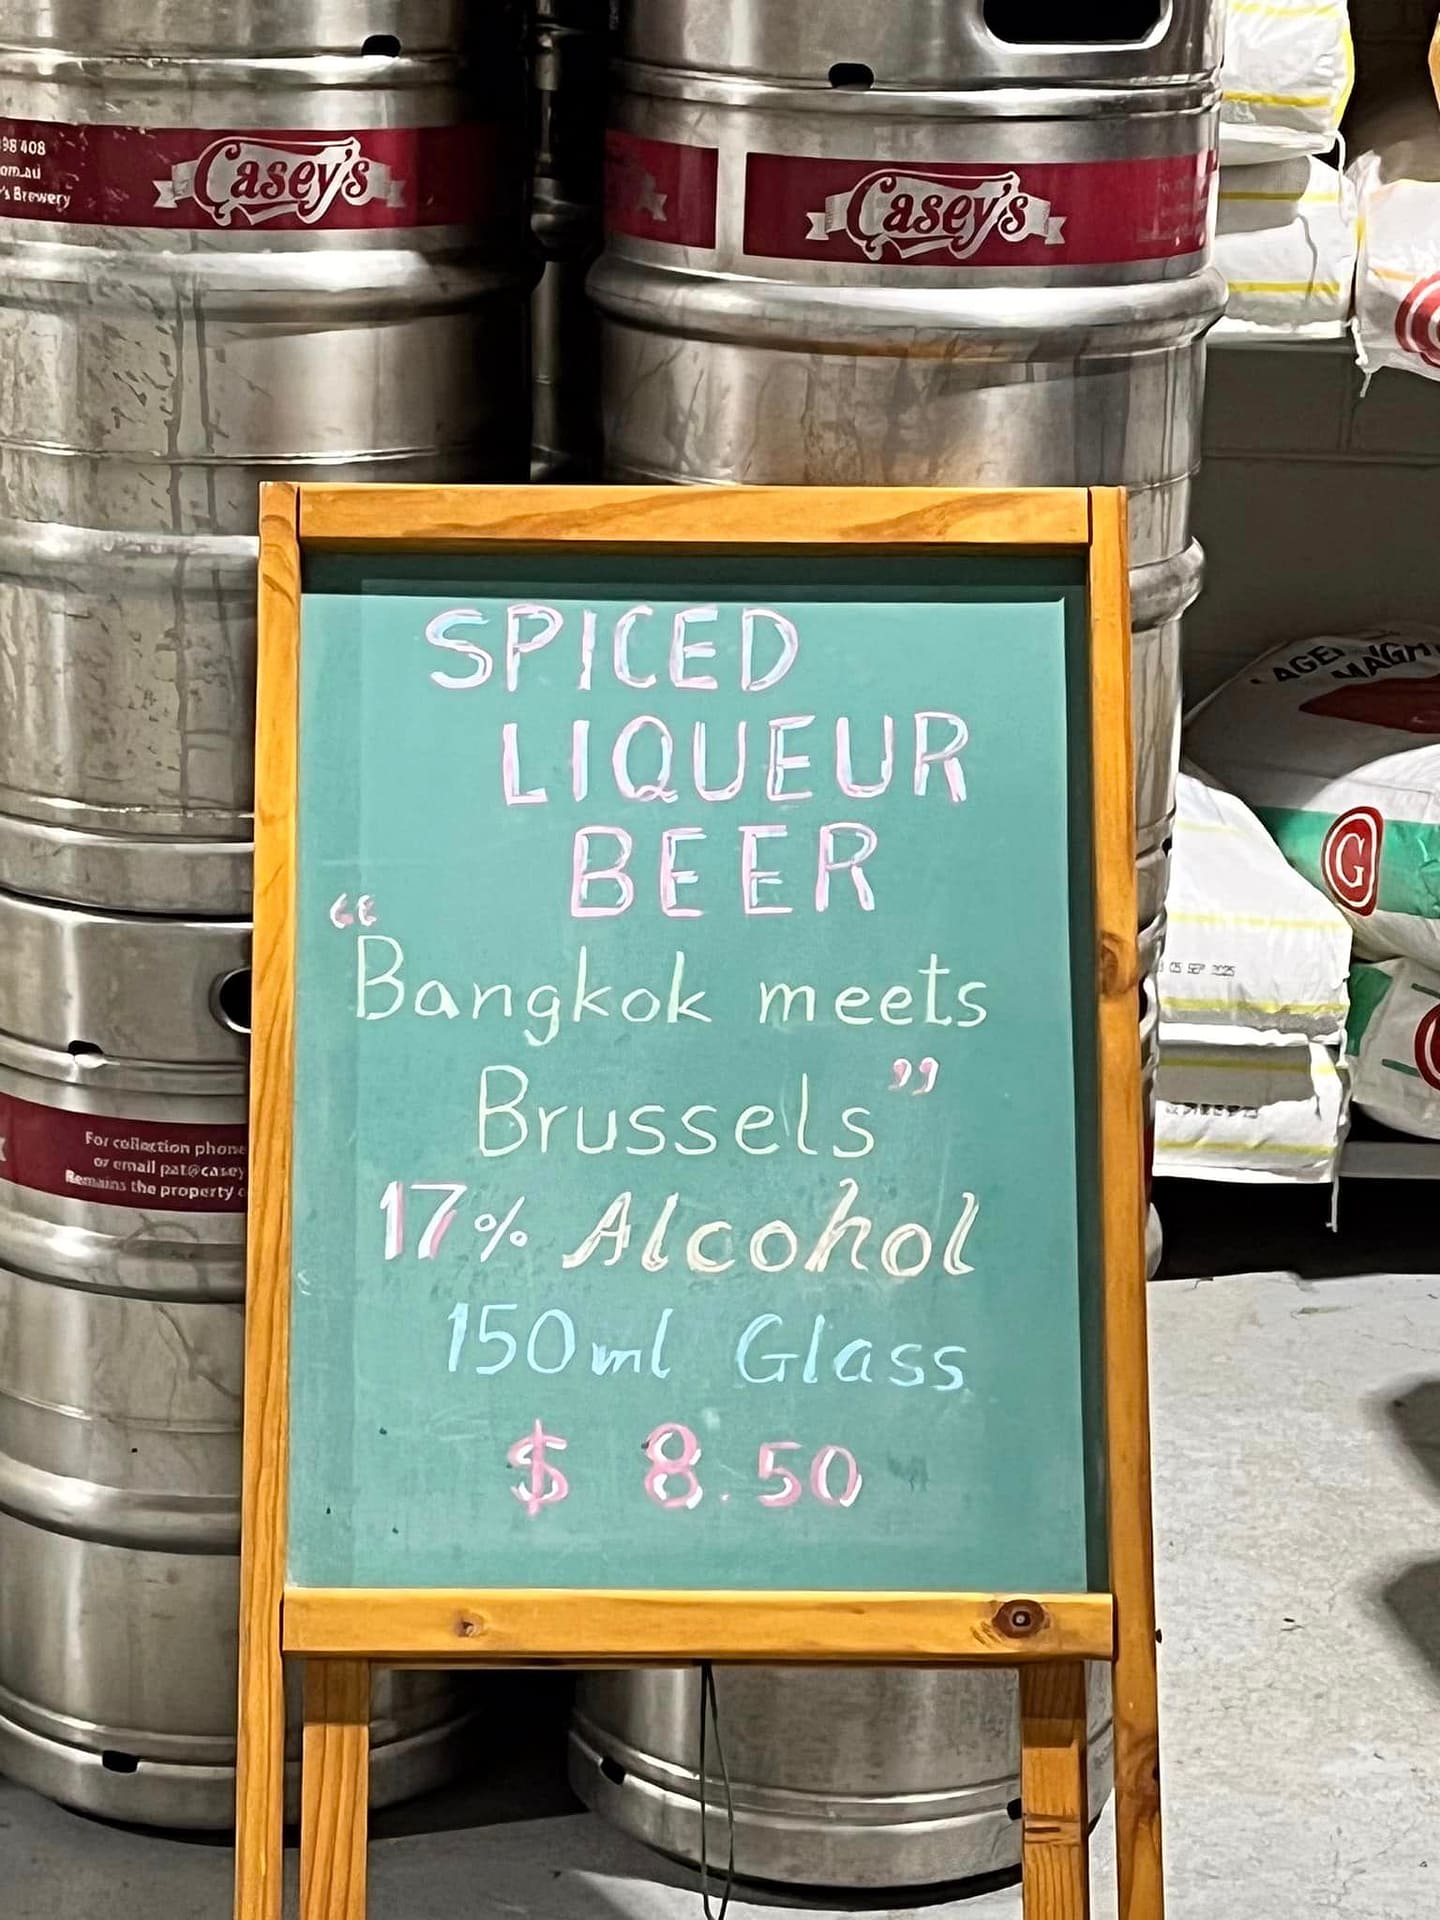 98 408
om.au
's Brewery
Casey's
Casey's
SPICED
LIQUEUR
BEER
“Bangkok meets
Brussels”
17% Alcohol
150ml Glass
$ 8.50
For collection phone
or email pat@casey
Remains the property o
MAGM
G
05 SEP 2025